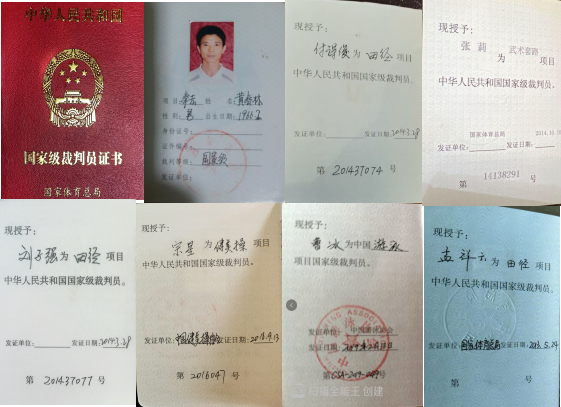 中华人民共和国
国家级裁判员证书
国家体育总局
项目: 拳击 姓名:
性别: 男 出生日期:
身份证号:
证件编号:
裁判等级: 国家级
发证单位:
现授予:
付诗俊 为 田径 项目
中华人民共和国国家级裁判员.
发证单位: 发证日期: 2014.3.28
第 201437074 号
现授予:
张莉 为 武术套路 项目
中华人民共和国国家级裁判员.
国家体育总局 2014.10.10
发证单位: 发证日期:
第 14138291 号
现授予:
刘子强 为 田径 项目
中华人民共和国国家级裁判员.
发证单位: 发证日期: 2014.3.28
第 201437077 号
现授予:
宗星 为 健美操 项目
中华人民共和国国家级裁判员.
发证单位: 发证日期:
第 2016047 号
现授予:
曹冰 为中国 游泳
项目国家级裁判员.
发证单位: 中国游泳协会
发证日期:
第 号
扫描全能王 创建
现授予:
孟祥云 为 田径 项目
中华人民共和国国家级裁判员.
发证单位: 发证日期:
第 号